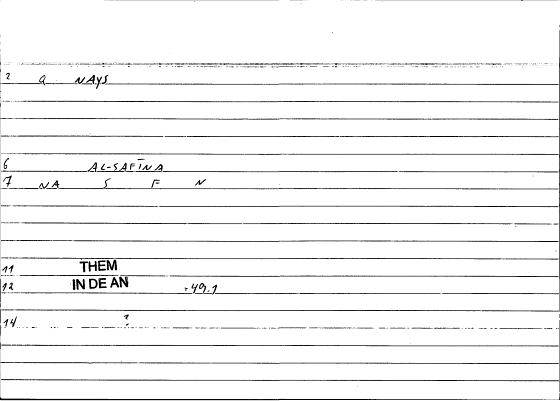 2 Q NAYS
6 AL-SAFĪNA
7 NA S F N
11 THEM
12 IN DE AN +49.1
14 ?